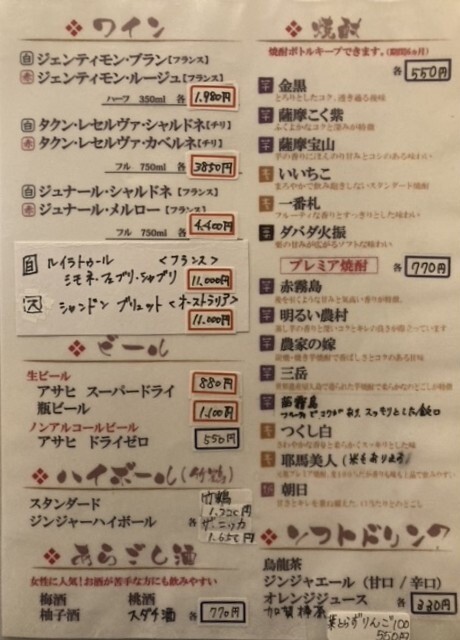 ワイン
白 ジェンティモン・ブラン【フランス】
赤 ジェンティモン・ルージュ【フランス】
ハーフ 350ml 各 1.980円
白 タクン・レセルヴァ・シャルドネ【チリ】
赤 タクン・レセルヴァ・カベルネ【チリ】
フル 750ml 3850円
白 ジュナール・シャルドネ【フランス】
赤 ジュナール・メルロー【フランス】
フル 750ml 各 4.400円
白 ルイラトゥール <フランス>
シモネ・フェブリ・シャブリ 11.000円
シャンドン ブリュット <オーストラリア>
11.000円
ビール
生ビール
アサヒ スーパードライ 880円
瓶ビール 1.100円
ノンアルコールビール
アサヒ ドライゼロ 550円
ハイボール(竹鶴)
スタンダード 竹鶴
ジンジャーハイボール 各
1.650円
あらごし酒
女性に人気!お酒が苦手な方にも飲みやすい
梅酒 桃酒
柚子酒 スダチ酒 各 770円
焼酎
焼酎ボトルキープできます。(期間6ヵ月)
各 550円
芋 金黒
とろりとしたコク、透き通る後味
芋 薩摩こく紫
ふくよかなコクと深みが特徴
芋 薩摩宝山
芋の香りにほんのり甘みとコシのある味わい
麦 いいちこ
まろやかで飲み飽きしないスタンダード焼酎
麦 一番札
フルーティな香りとすっきりとした味わい
ダバダ火振
栗の甘みが広がるソフトな味わい
プレミア焼酎 各 770円
芋 赤霧島
芋 明るい農村
芋 農家の嫁
芋 三岳
芋 茜霧島
スッキリとした飲口
麦 つくし白
麦 耶馬美人(米もあります)
朝日
ソフトドリンク
烏龍茶
ジンジャエール(甘口/辛口)
オレンジジュース 各 330円
葉とらずりんご100
550円